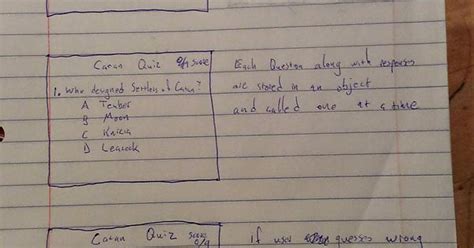 Catan Quiz 0/9 score
1. Who designed Settlers of Catan?
A Teuber
B Moon
C Knizia
D Leacock
Each Question along with responses
are stored in an object
and called one at a time
Catan Quiz score
0/9
If user guesses wrong